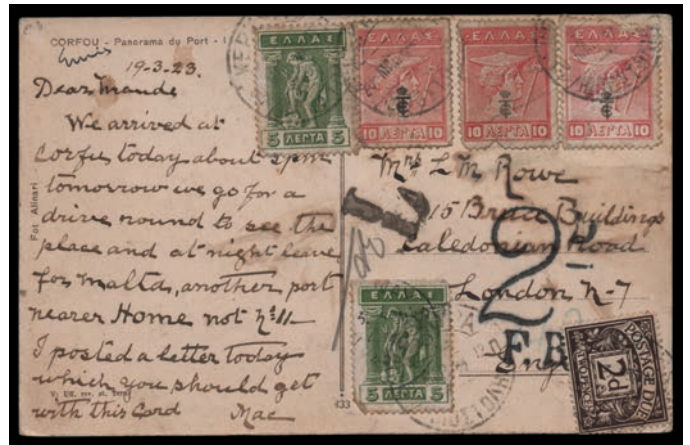 CORFOU - Panorama du Port -
19-3-23.
Dear Maude
We arrived at
Corfu today about 2pm
tomorrow we go for a
drive round to see the
place and at night leave
for Malta, another port
nearer Home not
I posted a letter today
which you should get
with this Card Mac
Fot Alinari
433
ΕΛΛΑΣ
5 ΛΕΠΤΑ 5
ΕΛΛΑΣ
10 ΛΕΠΤΑ 10
ΕΛΛΑΣ
10 ΛΕΠΤΑ 10
ΕΛΛΑΣ
10 ΛΕΠΤΑ 10
Mrs L M Rowe
15 Bruce Buildings
Caledonian Road
London N-7
2D
F.B
ΕΛΛΑΣ
5 ΛΕΠΤΑ 5
POSTAGE DUE
2d